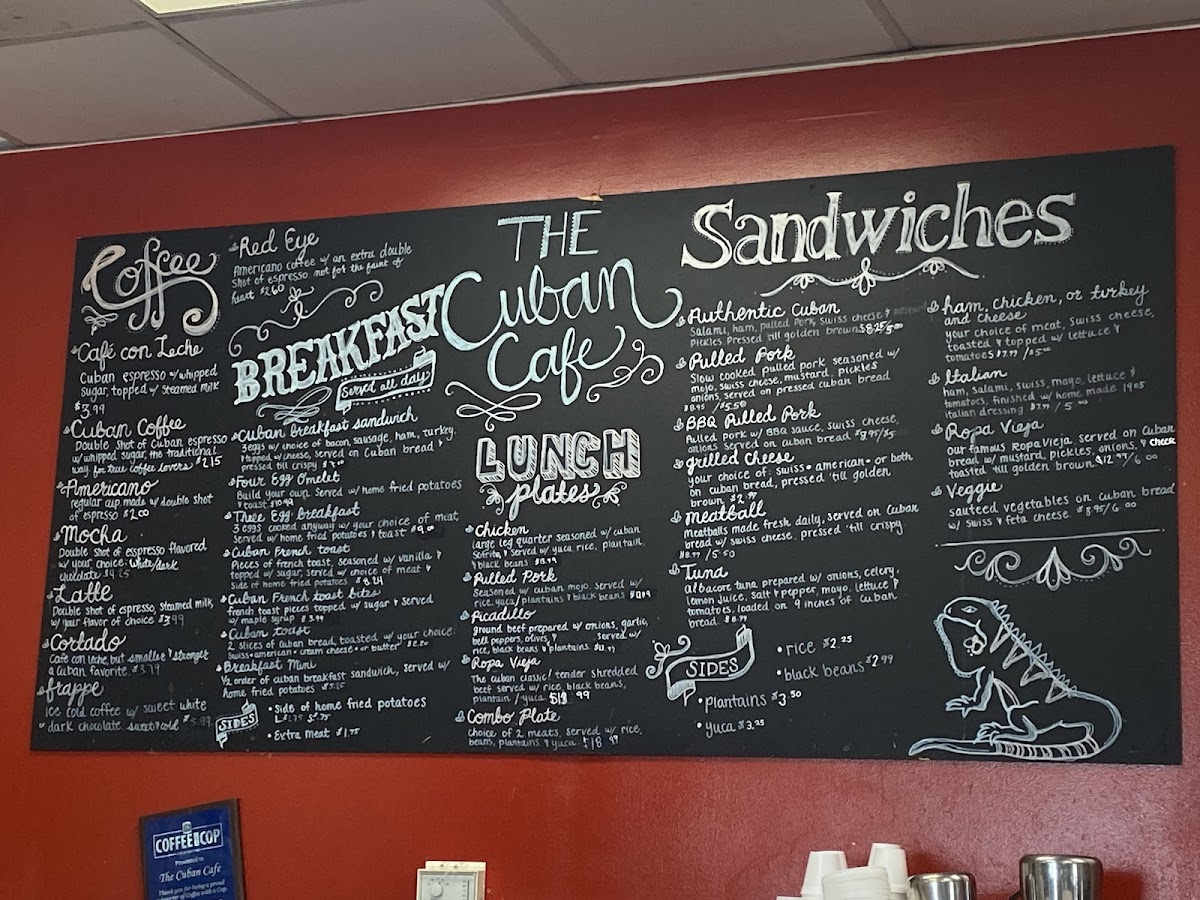 Coffee
Café con Leche
Cuban espresso w/whipped
sugar, topped w/ steamed milk
$3.99
Cuban Coffee
Double shot of Cuban espresso
w/whipped sugar, the traditional
way for true coffee lovers $2.15
Americano
regular cup made w/ double shot
of espresso $2.00
Mocha
Double shot of espresso flavored
w/ your choice: white/dark
chocolate $4.25
Latte
Double shot of espresso, steamed milk,
w/ your flavor of choice $3.99
Cortado
cafe con leche, but smaller & stronger
a Cuban favorite $3.79
frappe
Ice cold coffee w/ sweet white
or dark chocolate. sweet & cold
Red Eye
Americano coffee w/ an extra double
shot of espresso not for the faint of
heart $2.60
BREAKFAST
Served all day
Cuban breakfast sandwich
3 eggs w/ choice of bacon, sausage, ham, turkey,
topped w/ cheese, served on Cuban bread &
pressed till crispy
Four Egg Omelet
Build your own. Served w/ home fried potatoes
& toast
Three Egg breakfast
3 eggs cooked anyway w/ your choice of meat,
served w/ home fried potatoes & toast
Cuban French toast
Pieces of french toast, seasoned w/ vanilla &
topped w/ sugar, served w/ choice of meat &
side of home fried potatoes $8.24
Cuban French toast bites
french toast pieces topped w/ sugar & served
w/ maple syrup $3.99
Cuban toast
2 slices of Cuban bread, toasted w/ your choice:
Swiss • american • cream cheese • or butter
Breakfast Mini
1/2 order of cuban breakfast sandwich, served w/
home fried potatoes
SIDES
• Side of home fried potatoes
• Extra meat $1.75
THE
Cuban
Cafe
LUNCH
plates
Chicken
large leg quarter seasoned w/ cuban
Sofrito, & served w/ yuca, rice, plantain,
& black beans
Pulled Pork
Seasoned w/ cuban mojo, served w/
rice, yuca/plantains & black beans
Picadillo
ground beef prepared w/ onions, garlic,
bell peppers, olives, & served w/
rice, black beans & plantains
Ropa Vieja
The cuban classic! tender shredded
beef served w/ rice, black beans,
plantain / yuca
Combo Plate
choice of 2 meats, served w/ rice,
beans, plantains & yuca
Sandwiches
Authentic Cuban
Salami, ham, pulled pork, swiss cheese &
pickles. Pressed till golden brown
Pulled Pork
Slow cooked pulled pork seasoned w/
mojo, swiss cheese, mustard, pickles
onions, served on pressed cuban bread
$8.95 / $5.50
BBQ Pulled Pork
Pulled pork w/ BBQ sauce, swiss cheese,
onions served on cuban bread
grilled cheese
your choice of: swiss • american • or both
on cuban bread, pressed 'till golden
brown
meatball
meatballs made fresh daily, served on Cuban
bread w/ swiss cheese. pressed 'till crispy
Tuna
albacore tuna prepared w/ onions, celery,
lemon juice, salt & pepper, mayo, lettuce &
tomatoes, loaded on 9 inches of cuban
bread
SIDES
• rice $2.25
• black beans $2.99
• plantains $3.50
• yuca $3.25
ham, chicken, or turkey
and cheese
your choice of meat, swiss cheese,
toasted & topped w/ lettuce &
tomatoes
Italian
ham, salami, swiss, mayo, lettuce &
tomatoes, finished w/ home made 1905
italian dressing
Ropa Vieja
our famous Ropa Vieja, served on Cuban
bread w/ mustard, pickles, onions, & cheese
toasted till golden brown $12.99/6.00
Veggie
sauteed vegetables on cuban bread
w/ swiss & feta cheese $8.95/6.00
COFFEE COP
Presented to
The Cuban Cafe
Thank you for being a proud